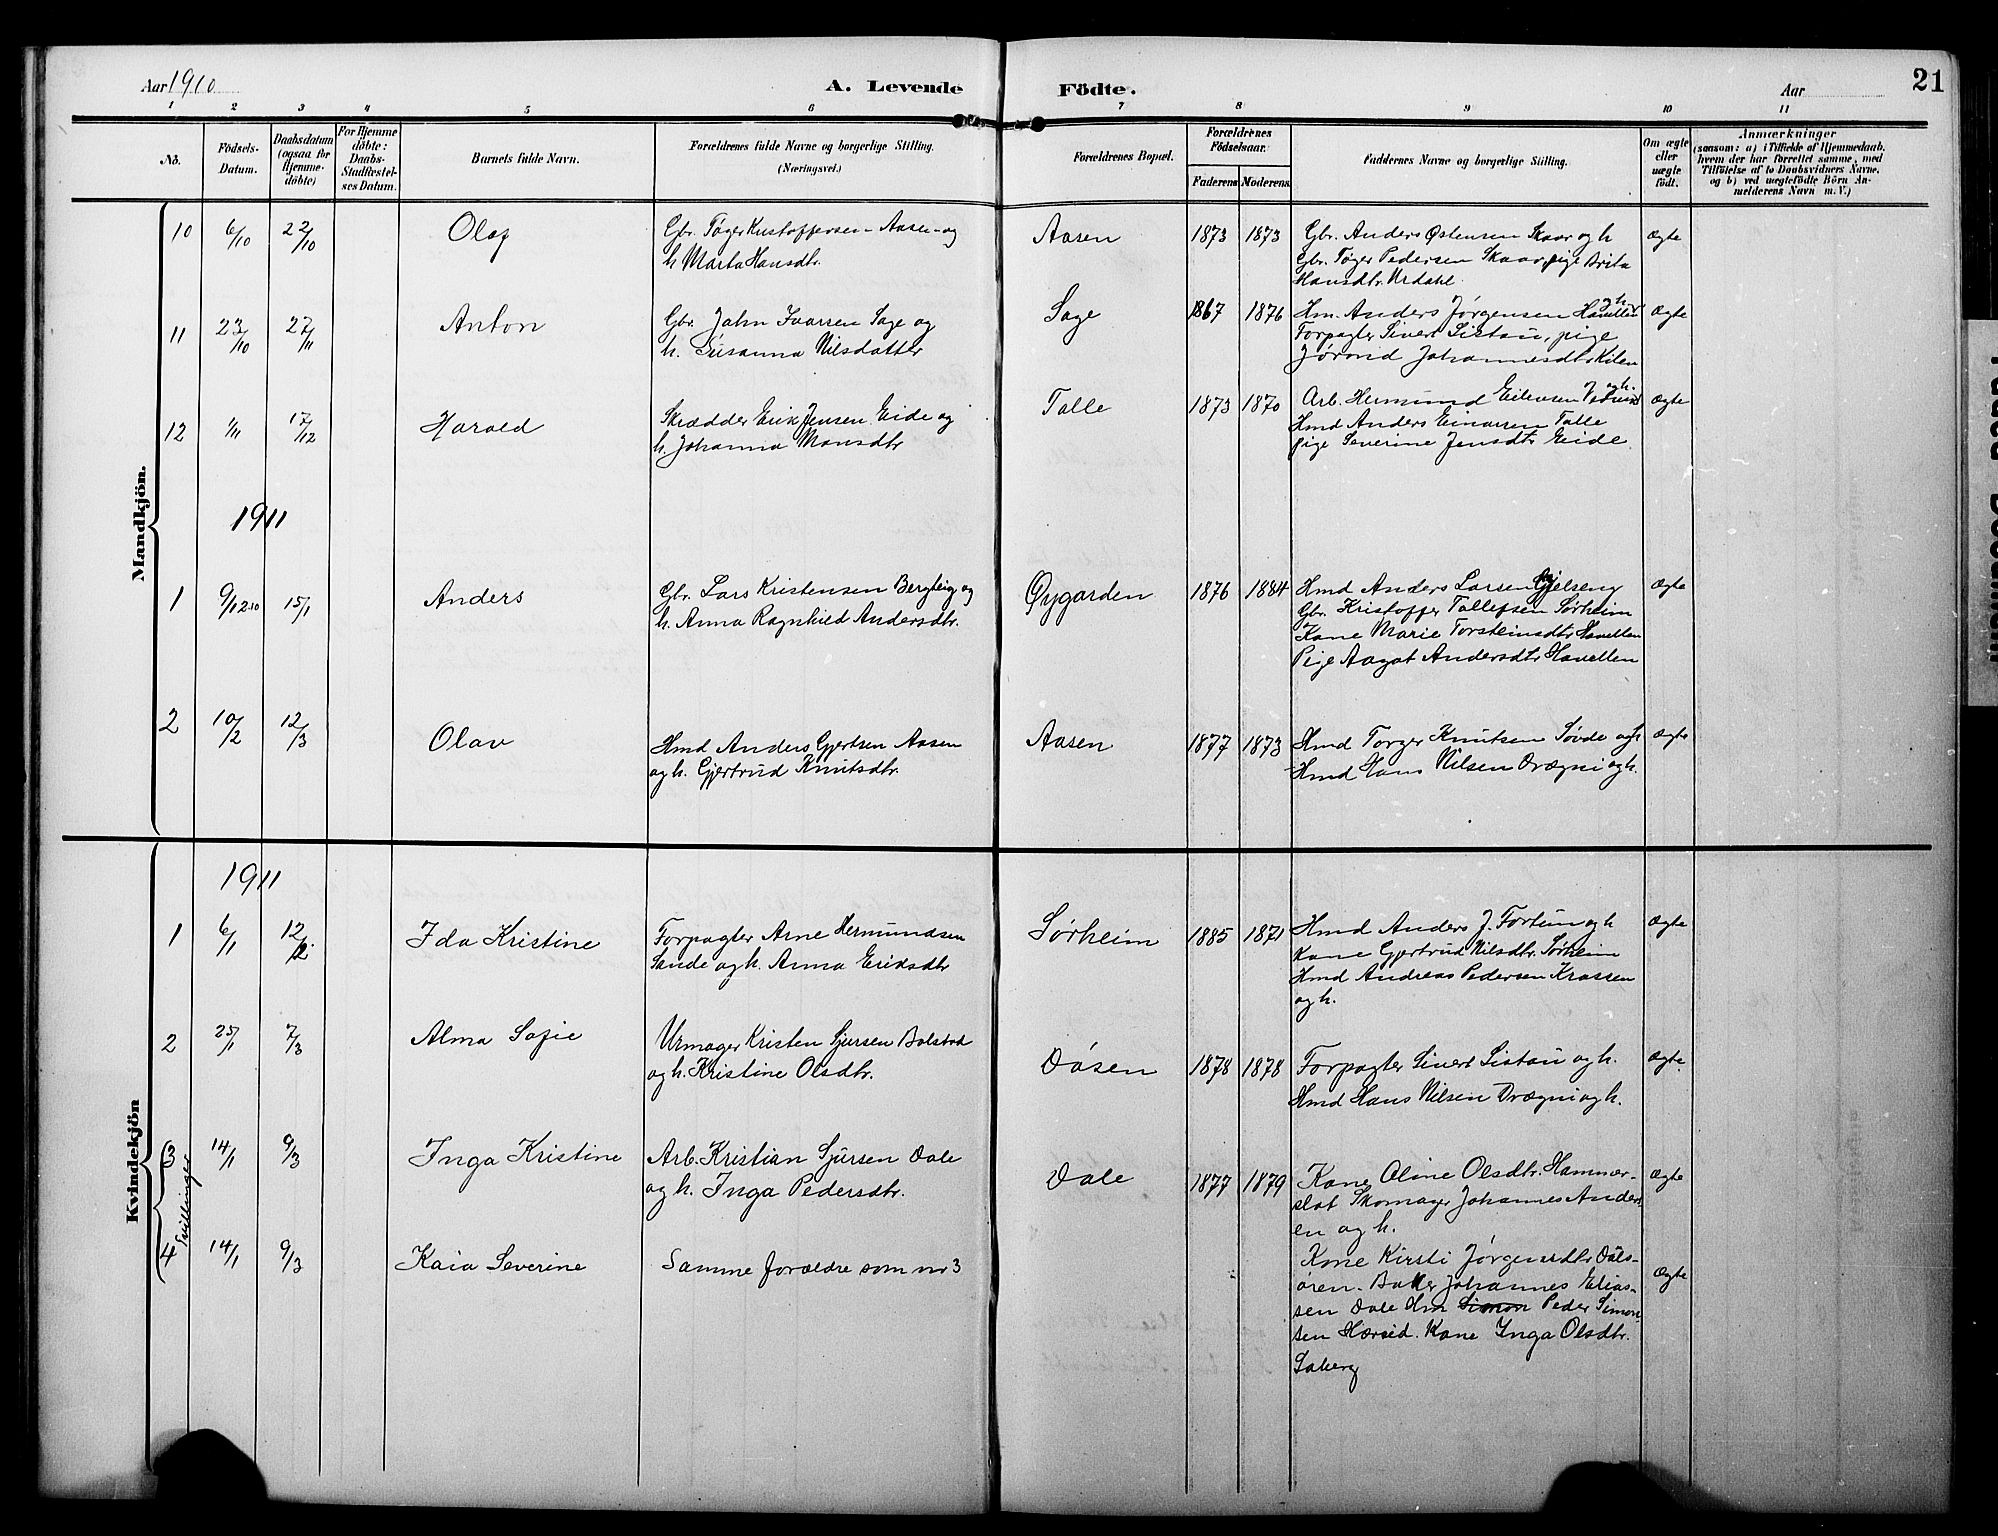 Aar 1910
A. Levende
Födte.
Aar
21
1 2 3 4 5 6 7 8 9 10 11
No.
Födsels-
Datum.
Daabsdatum
(ogsaa for
Hjemme-
döbte)
For Hjemme
döbte:
Daabs-
Stadfæstel-
ses Datum.
Barnets fulde Navn.
Forældrenes fulde Navne og borgerlige Stilling.
(Næringsvei.)
Forældrenes Bopæl.
Forældrenes
Födselsaar.
Faderens Moderens
Faddernes Navne og borgerlige Stilling.
Om ægte
eller
uægte
födt.
Anmærkninger
(saasom: a) i Tilfælde af Hjemmedaab,
hvem der har forrettet samme, med
Tilföielse af to Daabsvidners Navne,
og b) ved uægtefödte Börn An-
melderens Navn m. V.)
Mandkjön.
10 6/10 22/10 Olaf
Gbr. Tøger Kristoffersen Aasen og
h. Marta Hansdtr.
Aasen 1873 1873
Gbr. Anders Østensen Skaar og h
Gbr. Tøger Pedersen Skaar, pige Brita
Hansdtr. Urdahl.
Ægte
11 23/10 27/11 Anton
Gbr. John Ivarsen Sage og
h. Susanna Nilsdatter
Sage 1867 1876
Hm. Anders Jørgensen Havellen og h.
Forpagter Sivert Listau, pige
Jørond Johannesdtr. Kilen
Ægte
12 1/11 17/12 Harald
Skrædder Erik Jensen Eide og
h. Johanna Monsdtr
Talle 1873 1870
Arb. Hermund Eilevsen og h.
Hmd Anders Einarsen Talle
pige Severine Jensdtr Eide
Ægte
1911
1 9/12 10 15/1 Anders
Gbr. Lars Kristensen Bergteig og
h. Anna Ragnhild Andersdtr.
Øygarden 1876 1884
Hmd Anders Larsen Gjelseng
Gbr. Kristoffer Tollefsen Sørheim
Kone Marie Torsteinsdtr Havellen
Pige Aagot Andersdtr Havellen
Ægte
2 10/2 12/3 Olav
Hmd Anders Gjertsen Aasen
og h. Gjertrud Knutsdtr.
Aasen 1877 1873
Hmd Torger Knutsen Søvde og h
Hmd Hans Nilsen Drægni og h.
Ægte
Kvindekjön
1911
1 6/1 12/2. Ida Kristine
Forpagter Arne Hermundsen
Sande og h. Anna Eriksdtr
Sørheim 1885 1871
Hmd Anders J. Fortun og h
Kone Gjertrud Nilsdtr. Sørheim
Hmd Andreas Pedersen Krossen
og h.
Ægte
2 25/1 7/3 Alma Sofie
Urmager Kristen Sjursen Bolstad
og h. Kristine Olsdtr.
Døsen 1878 1878
Forpagter Sivert Listau og h.
Hmd Hans Nilsen Drægni og h.
Ægte
Tvillinger
3 14/1 9/3 Inga Kristine
Arb. Kristian Sjursen Dale
og h. Inga Pedersdtr.
Dale 1877 1879
Kone Oline Olsdtr. Hammer-
slat Skomager Johannes Anders
en og h.
Ægte
4 14/1 9/3 Kaia Severine
Samme forældre som nr 3
Kone Kirsti Jørgensdtr Dals-
øren. Baker Johannes Elias-
sen Dale Hm Simon Peder Simon
sen Hæreid. Kone Inga Olsdtr.
Soberg
Ægte